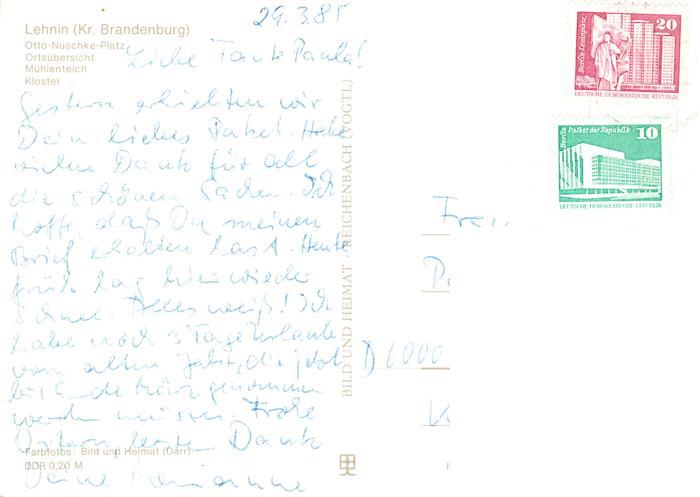 29.3.85
Lehnin (Kr. Brandenburg)
Otto-Nuschke-Platz
Ortsübersicht
Mühlenteich
Kloster
Liebe Tante Paula!
Gestern erhielten wir
Dein liebes Paket. Habe
vielen Dank für all
die schönen Sachen. Ich
hoffe, daß Du meinen
Brief erhalten hast. Heute
früh lag hier wieder
Schnee. Alles weiß! Ich
habe noch 3 Tage Urlaub
vom alten Jahr, die jetzt
bis Ende März genommen
werden müssen. Frohe
Ostern, Dank
Deine Marianne
Farbfotos: Bild und Heimat (Darr)
DDR 0,20 M
BILD UND HEIMAT · REICHENBACH (VOGTL)
Berlin-Leninplatz
20
DEUTSCHE DEMOKRATISCHE REPUBLIK
Berlin Palast der Republik
10
DEUTSCHE DEMOKRATISCHE REPUBLIK
D 6000